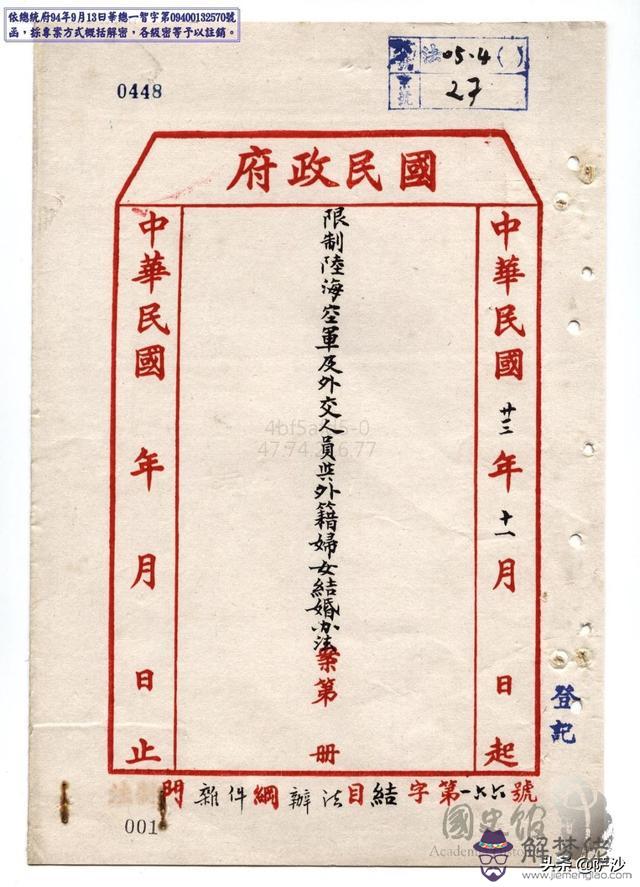 依總統府94年9月13日華總一智字第09400132570號
函，採專案方式概括解密，各級密等予以註銷。
法05.4( )
27
號
0448
國民政府
中華民國廿三年十一月 日起
限制陸海空軍及外交人員與外籍婦女結婚办法案第 册
中華民國 年 月 日止
登記
門 雜件 綱 辦法 目 結 字第一六六號
001
4bf5a 5-0
47.74. 6.77
國史館
Academia Historica
解梦佬
www.jiemenglao.com
头条 @萨沙